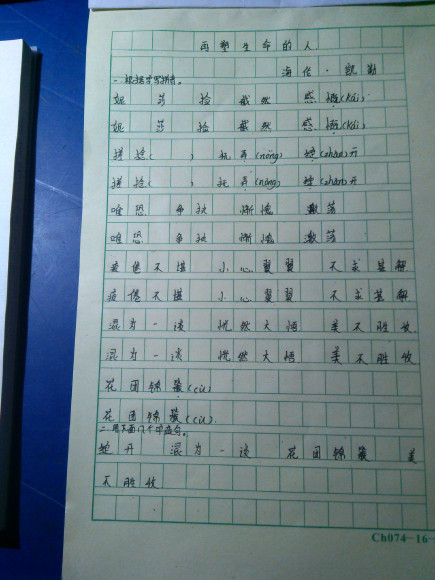 再塑生命的人
海伦·凯勒
一.根据拼写拼音。
妮 莎 捡 截然 感慨(kǎi)
妮 莎 捡 截然 感慨(kǎi)
搓捻( ) 玩弄(nòng) 绽(zhàn)开
搓捻( ) 玩弄(nòng) 绽(zhàn)开
唯恐 争执 惭愧 激荡
唯恐 争执 惭愧 激荡
疲倦不堪 小心翼翼 不求甚解
疲倦不堪 小心翼翼 不求甚解
混为一谈 恍然大悟 美不胜收
混为一谈 恍然大悟 美不胜收
花团锦簇(cù)
花团锦簇(cù)
二.用下面几个字造句。
绽开 混为一谈 花团锦簇 美
不胜收
Ch074-16-